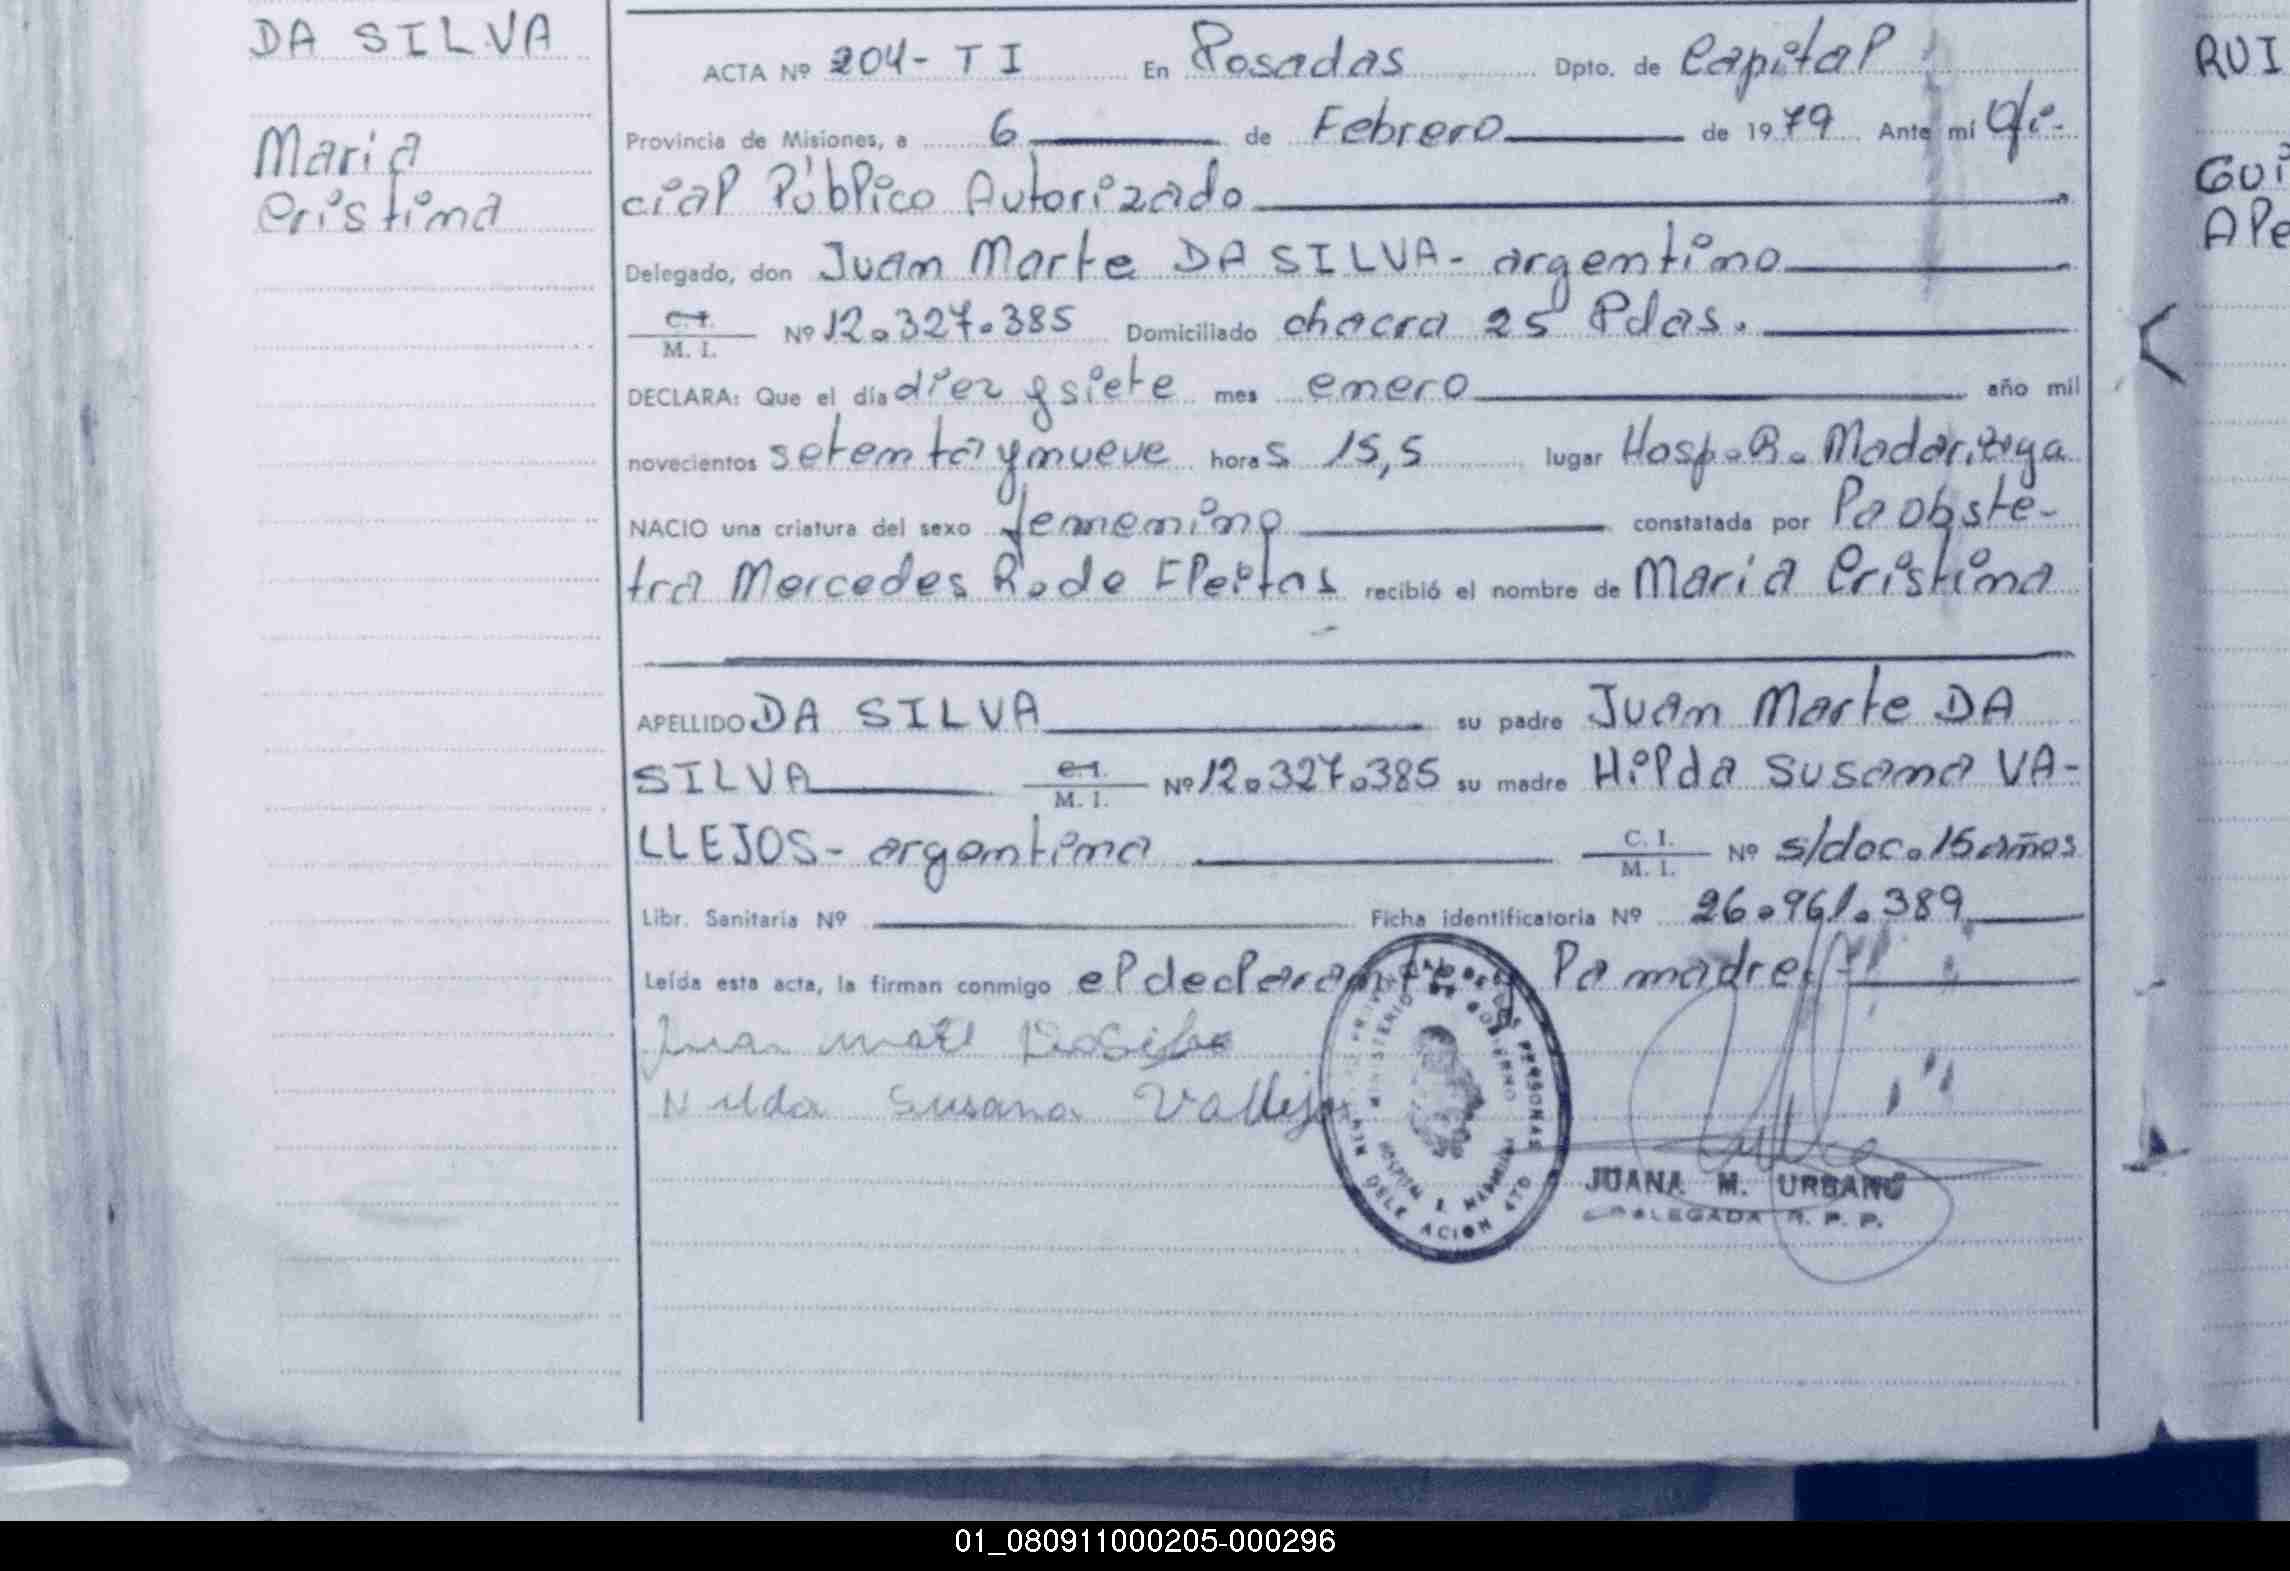 DA SILVA
Maria
Cristina
ACTA Nº 204- T I En Posadas Dpto. de Capital
Provincia de Misiones, a 6 de Febrero de 1979 Ante mí Ofi-
cial Público Autorizado
Delegado, don Juan Marte DA SILVA- argentino
C. I.
M. I. Nº 12.327.385 Domiciliado chacra 25 Pdas.
DECLARA: Que el día diez y siete mes enero año mil
novecientos setenta y nueve horas 15,5 lugar Hosp. R. Madariaga
NACIO una criatura del sexo femenino constatada por la obste-
tra Mercedes R. de recibió el nombre de Maria Cristina
APELLIDO DA SILVA su padre Juan Marte DA
SILVA C. I.
M. I. Nº 12.327.385 su madre Hilda Susana VA-
LLEJOS- argentina C. I.
M. I. Nº s/doc. 15 años
Libr. Sanitaria Nº Ficha identificatoria Nº 26.961.389
Leída esta acta, la firman conmigo el declarante y la madre
Juan
Nilda Susana Vallejos
MINISTERIO DE GOBIERNO
DE LAS PERSONAS
DELEGACION 4TO
JUANA M. URBANO
DELEGADA R. P. P.
RUI
GUI
ALe
01_080911000205-000296